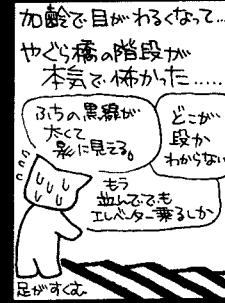 加齢で目がわるくなって…
やぐら橋の階段が
本気で怖かった……
ふちの黒線が
太くて
影に見える。
どこが
段か
わからない
もう
並んででも
エレベーター乗るしか
足がすくむ